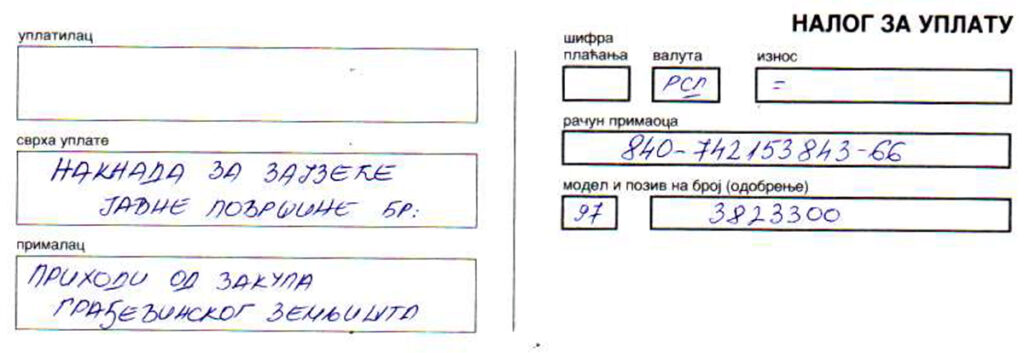 НАЛОГ ЗА УПЛАТУ
уплатилац
сврха уплате
НАКНАДА ЗА ЗАУЗЕЋЕ
ЈАВНЕ ПОВРШИНЕ БР:
прималац
ПРИХОДИ ОД ЗАКУПА
ГРАЂЕВИНСКОГ ЗЕМЉИШТА
шифра
плаћања
валута
РСД
износ
=
рачун примаоца
840-742153843-66
модел и позив на број (одобрење)
97
3823300